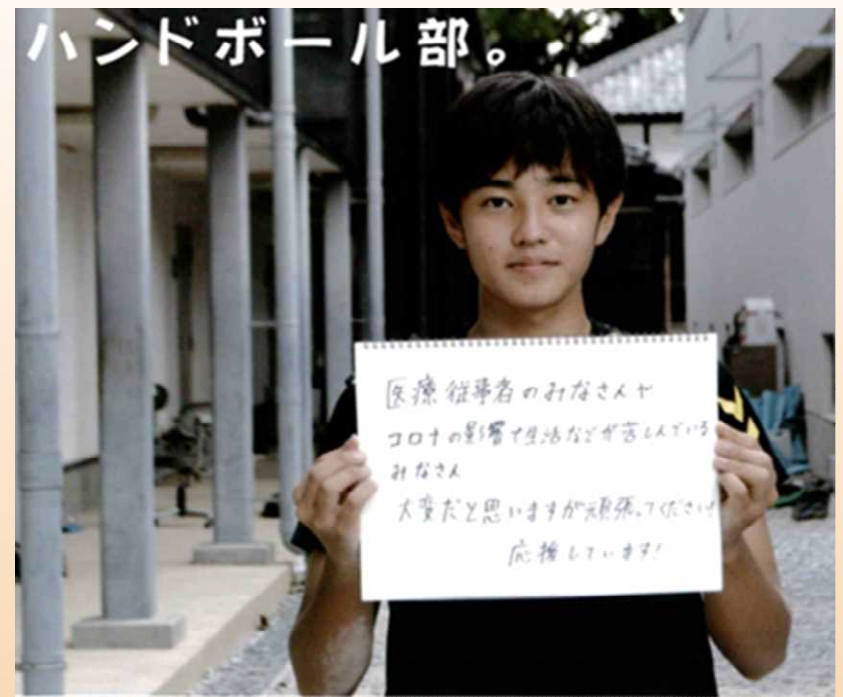 ハンドボール部。
医療従事者のみなさんや
コロナの影響で生活などが苦しんでいる
みなさん
大変だと思いますが頑張ってください!
応援しています!